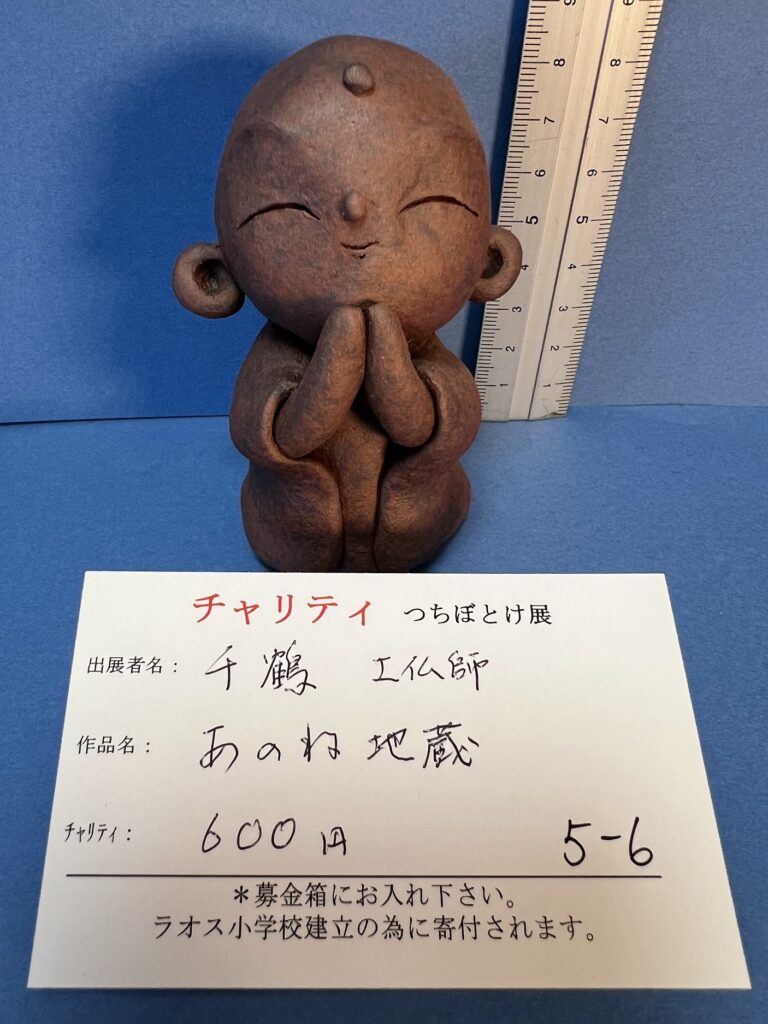 チャリティ つちぼとけ展
出展者名： 千鶴 工仏師
作品名： あのね地蔵
ﾁｬﾘﾃｨ： 600円 5-6
＊募金箱にお入れ下さい。
ラオス小学校建立の為に寄付されます。
9
8 8
7 7
6 9
5 5
4 4
3 3
2 2
1 1